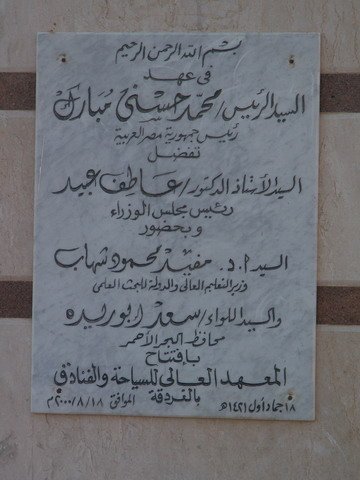 بسم الله الرحمن الرحيم
فى عهد
السيد الرئيس / محمد حسنى مبارك
رئيس جمهورية مصر العربية
تفضل
السيد الأستاذ الدكتور / عاطف عبيد
رئيس مجلس الوزراء
وبحضور
السيد ا . د . مفيد محمود شهاب
وزير التعليم العالى والدولة للبحث العلمى
والسيد اللواء / سعد ابو ريده
محافظ البحر الأحمر
بإفتتاح
المعهد العالى للسياحة والفنادق
بالغردقة
١٨ جماد أول ١٤٢١هـ الموافق ٢٠٠٠/٨/١٨م